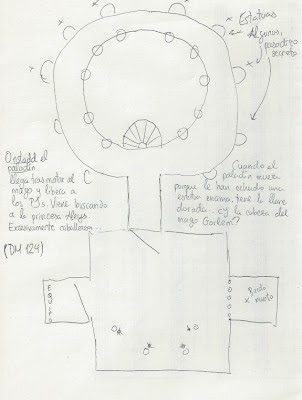 Estatuas
Algunas,
pasadizo
secreto
el
paladín
llega tras matar al
mago y libera a
los PJs. Viene buscando
a la princesa
Excesivamente caballeroso.
(DM 124)
C
Cuando el
paladín muera
porque le han echado una
estatua encima, tiene la llave
dorada. ¿y la cabeza del
mago Gorlem?